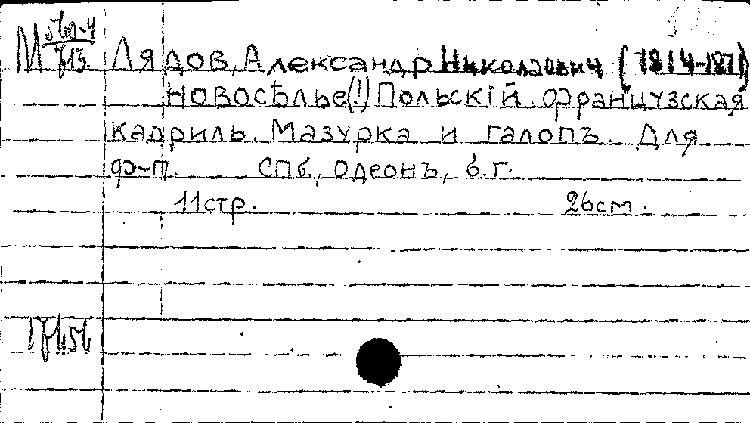 М
713 Лядов, Александр Николаевич (1814-1871)
Новосѣлье(!) Польскiй, французская
кадриль. Мазурка и галопъ. Для
ф-п. СПб, Одеонъ, б.г.
11стр. 26см.